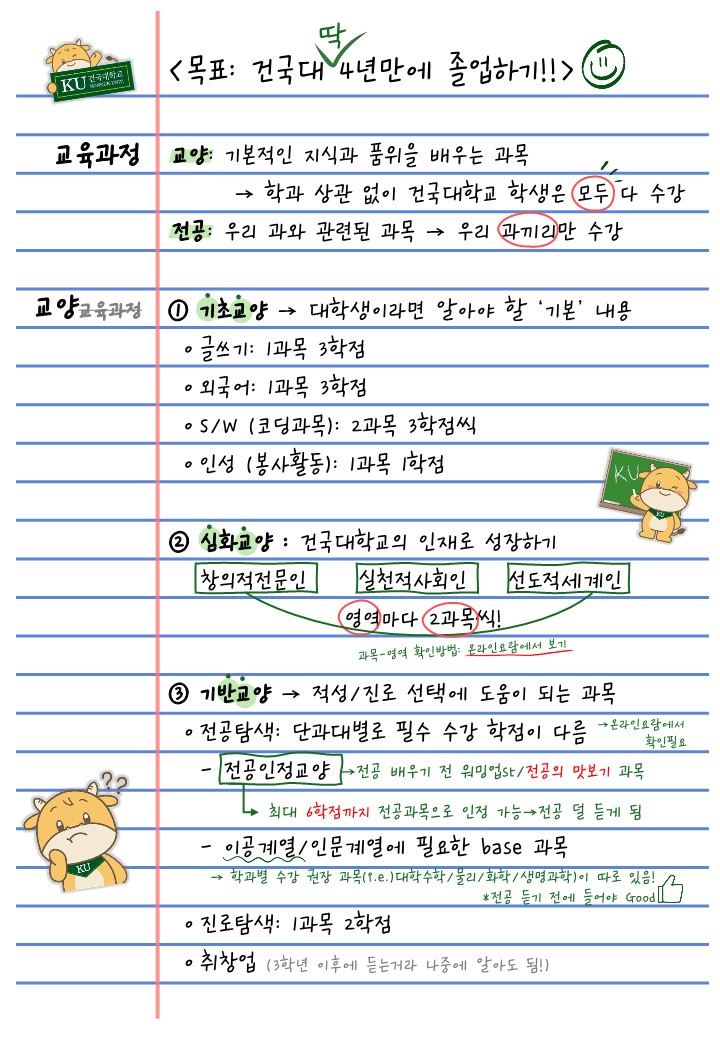 딱
<목표: 건국대 ✓ 4년만에 졸업하기!!>
KU 건국대학교
KONKUK UNIV.
교육과정
교양: 기본적인 지식과 품위을 배우는 과목
→ 학과 상관 없이 건국대학교 학생은 모두 다 수강
전공: 우리 과와 관련된 과목 → 우리 과끼리만 수강
교양교육과정
① 기초교양 → 대학생이라면 알아야 할 '기본' 내용
• 글쓰기: 1과목 3학점
• 외국어: 1과목 3학점
• S/W (코딩과목): 2과목 3학점씩
• 인성 (봉사활동): 1과목 1학점
KU
KU
② 심화교양 : 건국대학교의 인재로 성장하기
창의적전문인 실천적사회인 선도적세계인
영역마다 2과목씩!
과목-영역 확인방법: 온라인요람에서 보기
③ 기반교양 → 적성/진로 선택에 도움이 되는 과목
• 전공탐색: 단과대별로 필수 수강 학점이 다름 →온라인요람에서
확인필요
- 전공인정교양 →전공 배우기 전 워밍업st/전공의 맛보기 과목
최대 6학점까지 전공과목으로 인정 가능→전공 덜 듣게 됨
??
KU
- 이공계열/인문계열에 필요한 base 과목
→ 학과별 수강 권장 과목(i.e.)대학수학/물리/화학/생명과학)이 따로 있음!
*전공 듣기 전에 들어야 Good
• 진로탐색: 1과목 2학점
• 취창업 (3학년 이후에 듣는거라 나중에 알아도 됨!)